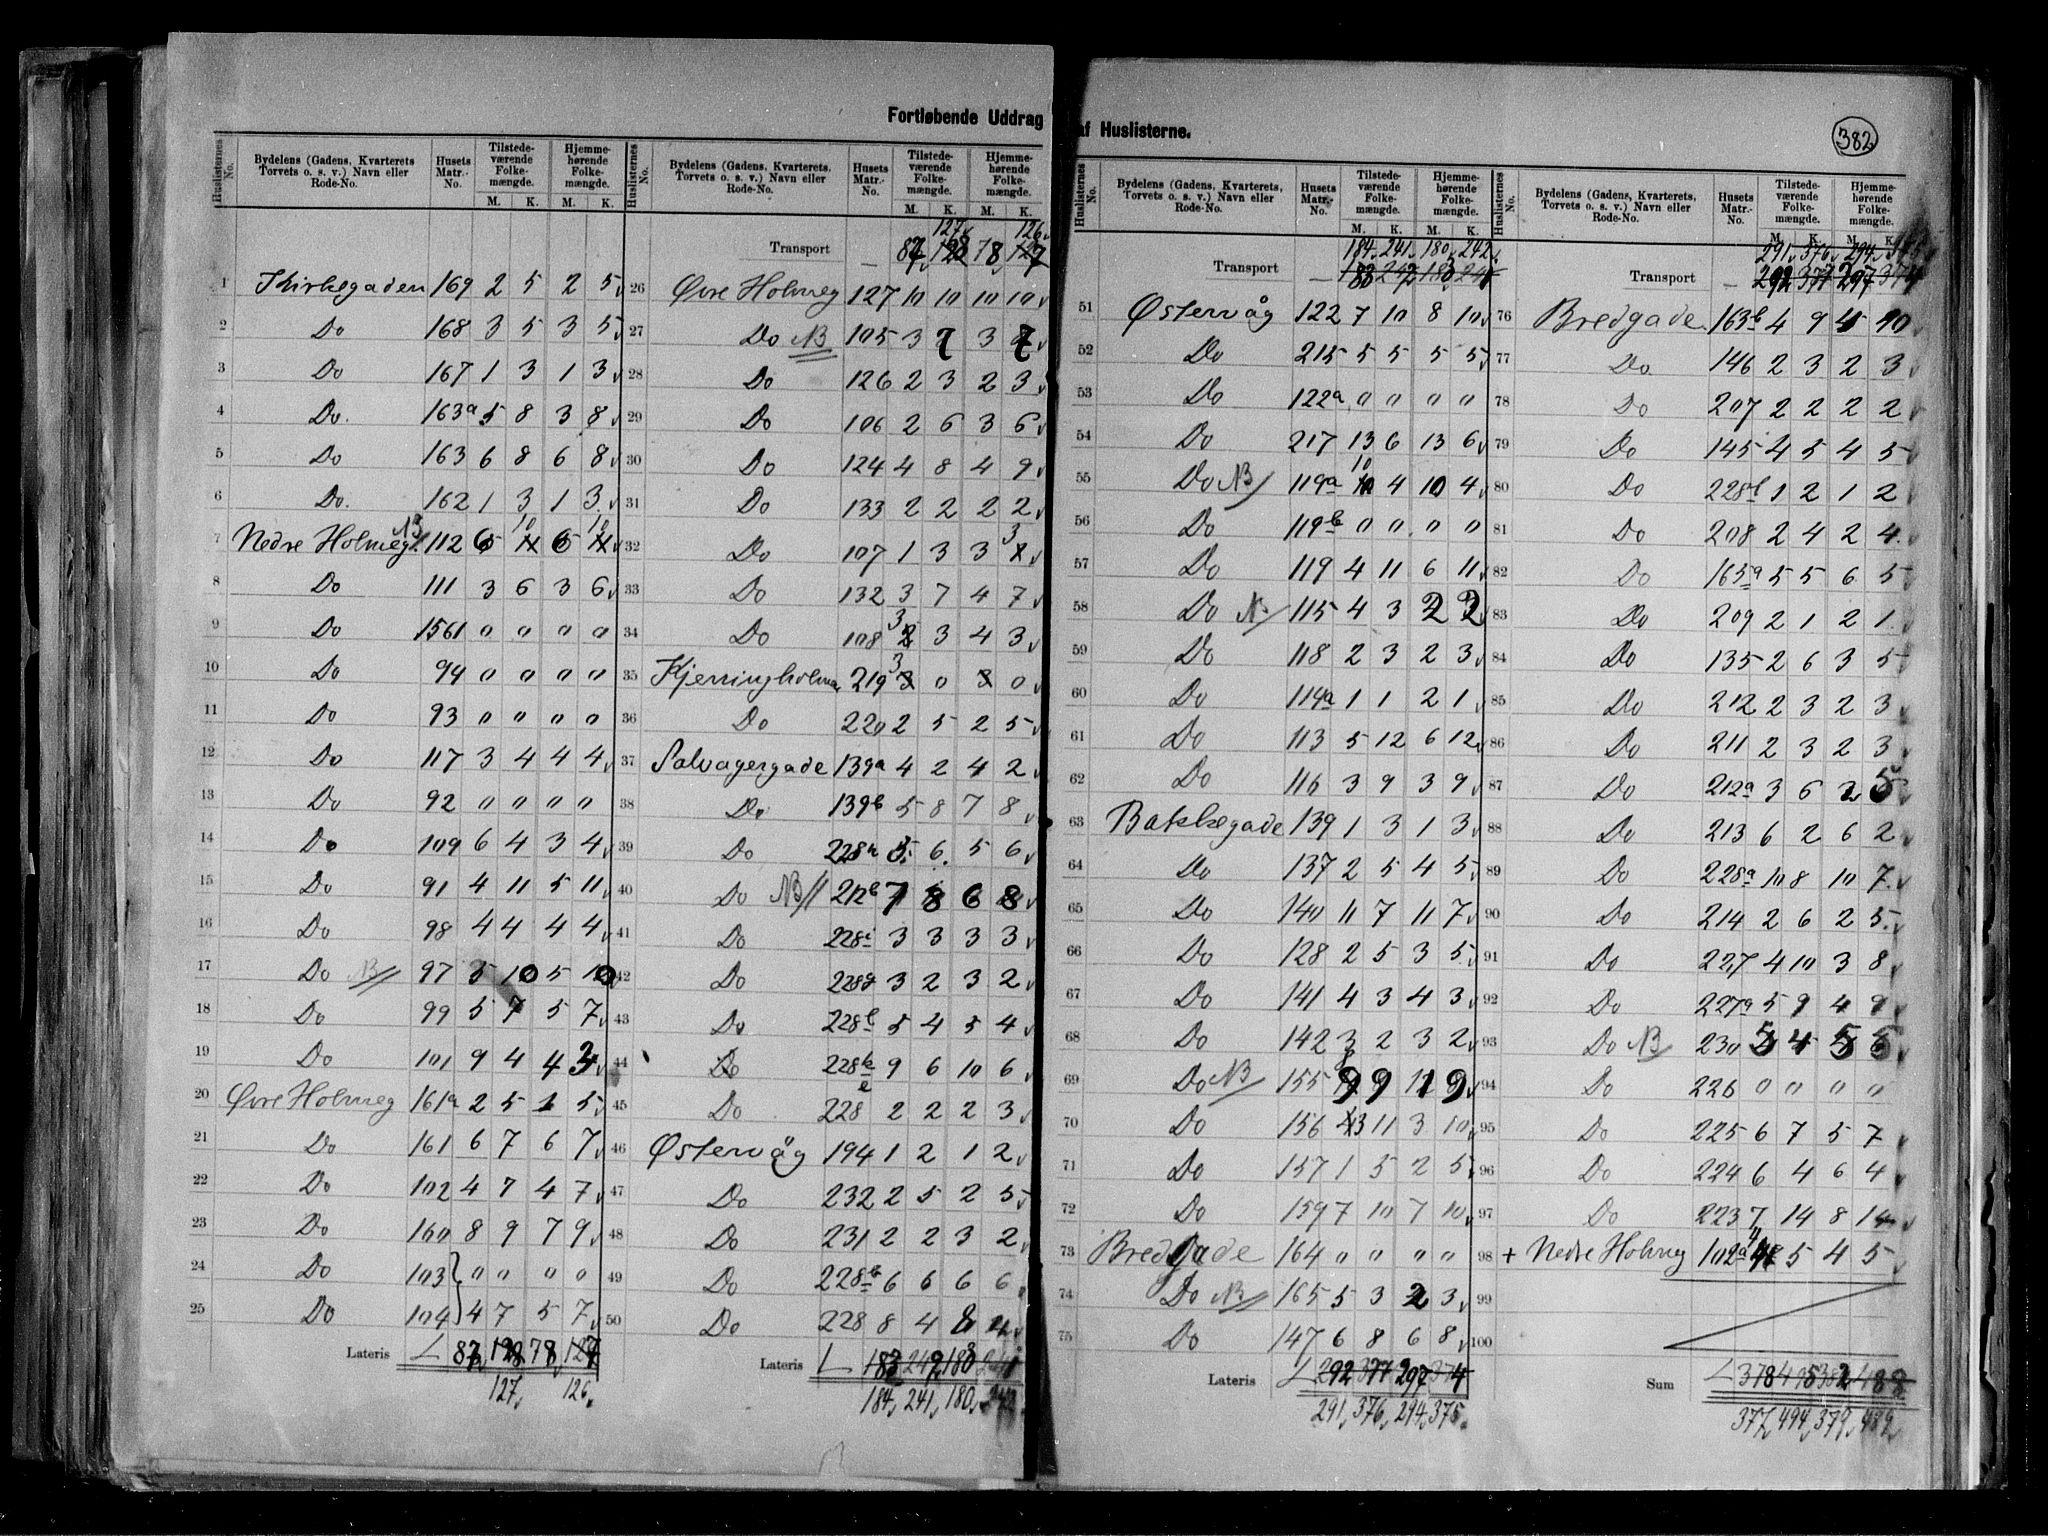 Fortløbende Uddrag af Huslisterne.
382
Huslisternes No. | Bydelens (Gadens, Kvarterets Torvets o. s. v.) Navn eller Rode-No. | Husets Matr.-No. | Tilstede-værende Folke-mængde. M. K. | Hjemme-hørende Folke-mængde. M. K.
1 Kirkegaden 169 2 5 2 5
2 Do 168 3 5 3 5
3 Do 167 1 3 1 3
4 Do. 163a 5 8 3 8
5 Do 163 6 8 6 8
6 Do. 162 1 3 1 3
7 Nedre Holmeg. NB 112 6 10 6 10
8 Do 111 3 6 3 6
9 Do 1561 0 0 0 0
10 Do 94 0 0 0 0
11 Do 93 0 0 0 0
12 Do 117 3 4 4 4
13 Do 92 0 0 0 0
14 Do 109 6 4 3 4
15 Do 91 4 11 5 11
16 Do 98 4 4 4 4
17 Do NB 97 5 10 5 10
18 Do 99 5 7 5 7
19 Do 101 9 4 4 3
20 Øvre Holmeg 161a 2 5 1 5
21 Do 161 6 7 6 7
22 Do 102 4 7 4 7
23 Do 160 8 9 7 9
24 Do 103 0 0 0 0
25 Do 104 4 7 5 7
Lateris 87 128 78 127
127 126
Huslisternes No. | Bydelens (Gadens, Kvarterets, Torvets o. s. v.) Navn eller Rode-No. | Husets Matr.-No. | Tilstede-værende Folke-mængde. M. K. | Hjemme-hørende Folke-mængde. M. K.
127 126
Transport 87 128 78 127
26 Øvre Holmeg 127 10 10 10 10
27 Do NB 105 3 7 3 7
28 Do 126 2 3 2 3
29 Do 106 2 6 3 6
30 Do 124 4 8 4 9
31 Do 133 2 2 2 2
32 Do 107 1 3 3 3
33 Do 132 3 7 4 7
34 Do 108 3 3 4 3
35 Kjerringholmen 219 3 0 3 0
36 Do 220 2 5 2 5
37 Salvagergade 139a 4 2 4 2
38 Do 139b 5 8 7 8
39 Do 228h 5 6 5 6
40 Do NB 212b 7 8 6 8
41 Do 228i 3 3 3 3
42 Do 228g 3 2 3 2
43 Do 228f 5 4 5 4
44 Do 228k 9 6 10 6
45 Do 228e 2 2 2 3
46 Østervåg 194 1 2 1 2
47 Do 232 2 5 2 5
48 Do 231 2 2 3 2
49 Do 228b 6 6 6 6
50 Do 228 8 4 8 4
Lateris 183 242 183 241
184 241 180 242
Huslisternes No. | Bydelens (Gadens, Kvarterets, Torvets o. s. v.) Navn eller Rode-No. | Husets Matr.-No. | Tilstede-værende Folke-mængde. M. K. | Hjemme-hørende Folke-mængde. M. K.
184 241 180 242
Transport 183 242 183 241
51 Østervåg 122 7 10 8 10
52 Do 215 5 5 5 5
53 Do 122a 0 0 0 0
54 Do 217 13 6 13 6
55 Do NB 119a 10 4 10 4
56 Do 119b 0 0 0 0
57 Do 119 4 11 6 11
58 Do NB 115 4 3 2 2
59 Do 118 2 3 2 3
60 Do 114a 1 1 2 1
61 Do 113 5 12 6 12
62 Do 116 3 9 3 9
63 Bakkegade 139 1 3 1 3
64 Do 137 2 5 4 5
65 Do 140 11 7 11 7
66 Do 128 2 5 3 5
67 Do 141 4 3 4 3
68 Do 142 3 2 3 2
69 Do NB 155 9 9 9
70 Do 156 3 11 3 10
71 Do 157 1 5 2 5
72 Do 159 7 10 7 10
73 Bredgade 164 0 0 0 0
74 Do NB 165 5 3 2 3
75 Do 147 6 8 6 8
Lateris 292 377 297 374
291 376 294 375
Huslisternes No. | Bydelens (Gadens, Kvarterets, Torvets o. s. v.) Navn eller Rode-No. | Husets Matr.-No. | Tilstede-værende Folke-mængde. M. K. | Hjemme-hørende Folke-mængde. M. K.
291 376 294 375
Transport 292 377 297 374
76 Bredgade 163b 4 9 4 10
77 Do 146 2 3 2 3
78 Do 207 2 2 2 2
79 Do 145 4 5 4 5
80 Do 228l 1 2 1 2
81 Do 208 2 4 2 4
82 Do 165a 5 5 6 5
83 Do 209 2 1 2 1
84 Do 135 2 6 3 5
85 Do 212 2 3 2 3
86 Do 211 2 3 2 3
87 Do 212a 3 6 2 5
88 Do 213 6 2 6 2
89 Do 228a 10 8 10 7
90 Do 214 2 6 2 5
91 Do 227 4 10 3 8
92 Do 227a 5 9 4 9
93 Do NB 230 5 4 5 5
94 Do 226 0 0 0 0
95 Do 225 6 7 5 7
96 Do 224 6 4 6 4
97 Do 223 7 14 8 14
98 + Nedre Holmeg 102a 4 5 4 5
99
100
Sum 378 495 382 488
377 494 379 489